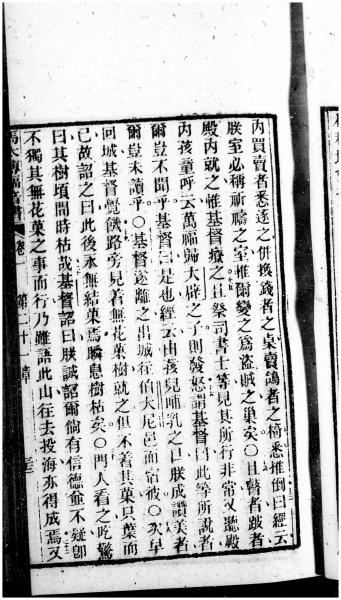 內買賣者悉逐之併換錢者之桌賣鴿者之椅悉推倒曰經云
朕室必稱祈禱之室惟爾變之爲盜賊之巢矣○且瞽者跛者
殿內就之惟基督療之且祭司書士等見其所行非常又聽殿
內孩童呼云萬福歸大辟之子則發怒謂基督曰此等所說者
爾豈不聞乎基督曰是也經云由孩兒哺乳之口朕成讚美者
爾豈未讀乎○基督遂離之出城徃伯大尼邑而宿彼○次早
回城基督覺餓路旁見着無花菓樹就之但不着其菓只葉而
已故詔之曰此後永無結菓焉瞬息樹枯矣○門人看之訝驚
曰其樹頃間時枯哉基督詔曰朕誠詔爾倘有信德爺不疑卽
不獨其無花菓之事而行乃雖語此山徃去投海亦得成焉又
馬太傳福音書 卷一 第二十一章